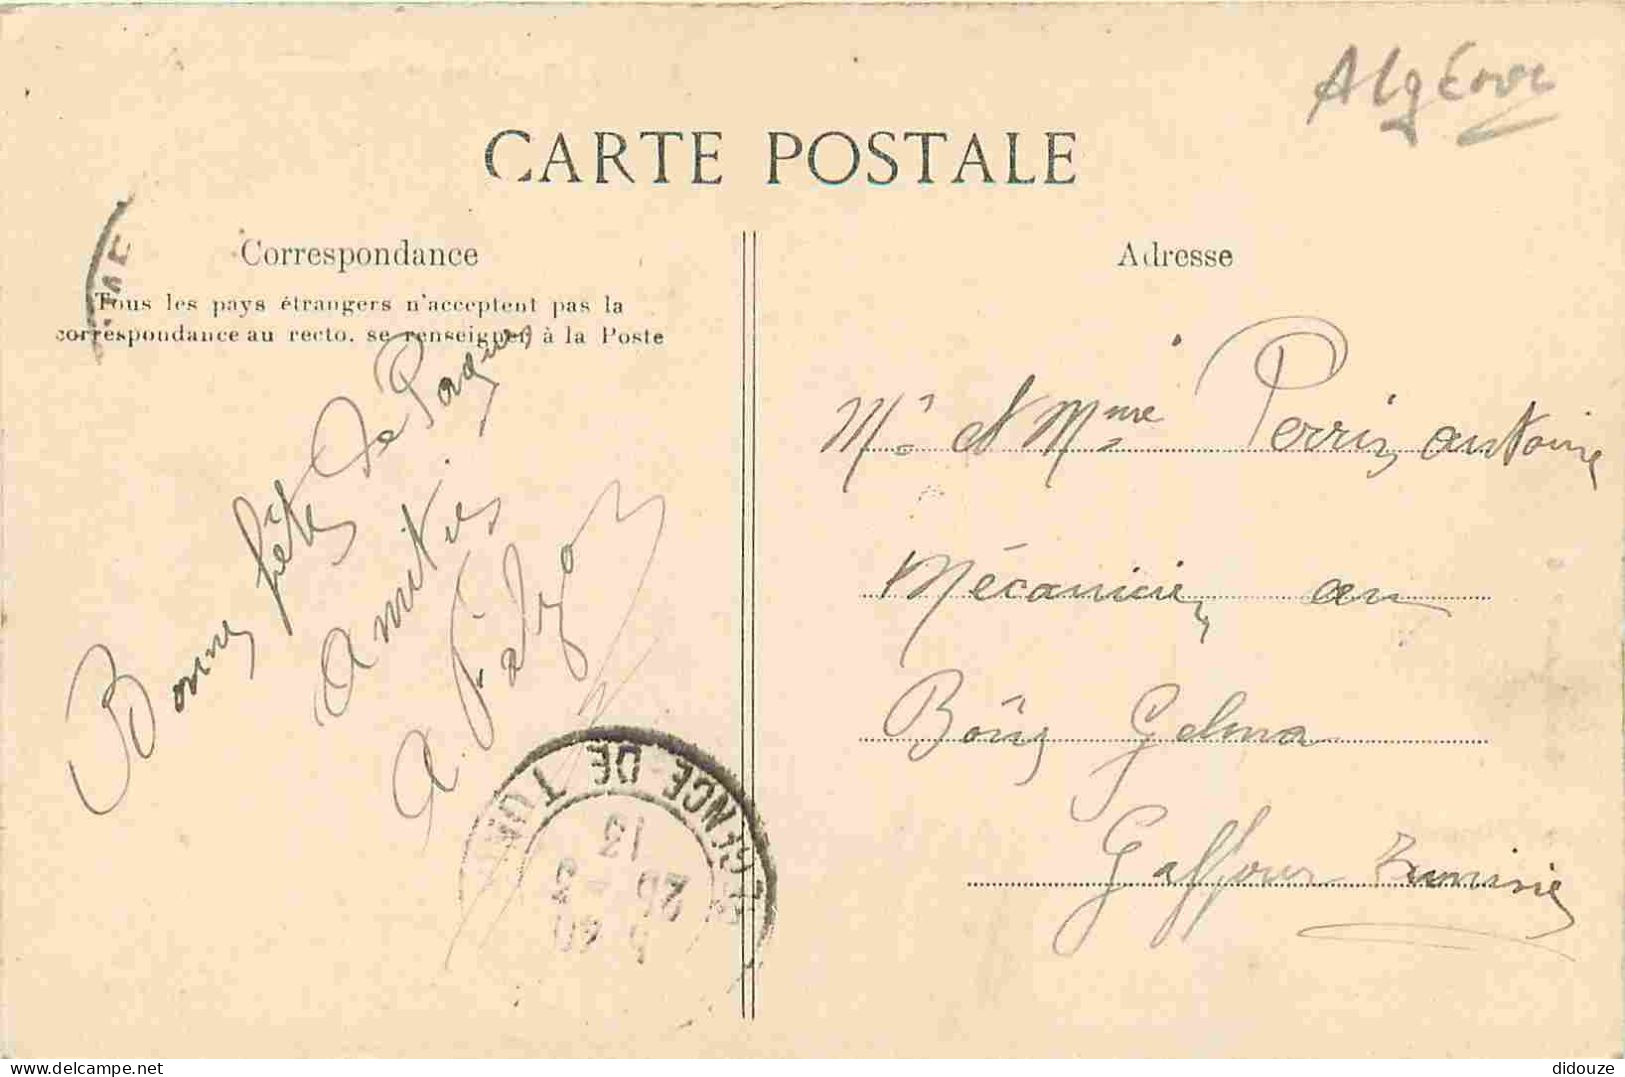 Algérie
CARTE POSTALE
Correspondance
Tous les pays étrangers n'acceptent pas la
correspondance au recto, se renseigner à la Poste
Bonnes fêtes de Pâques
Amitiés
A.
Adresse
Mr et Mme Perrin antoine
Mécanicien au
Bône Gelma
Gaffour Tunisie
REGENCE DE TUN
13
26 - 3
5 40
didouze